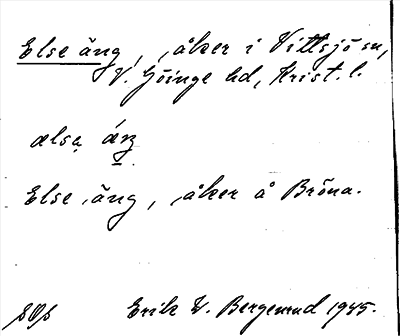 Else äng, åker i Vittsjö sn,
V. Göinge hd, Krist. l.
Else äng, åker å Bröna.
Erik V. Bergenrud 1945.